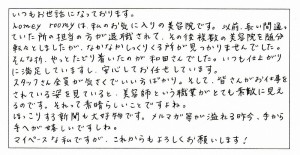 いつもお世話になっております。
lomey roomyは私のお気に入りの美容院です。以前、長い間通っ
ていた所の担当の方が退職されて、その後複数の美容院を随分
転々としましたが、なかなかしっくりくる所が見つかりませんでした。
そんな折、やっとたどり着いたのが和田さんでした。いつも仕上がり
に満足していますし、安心してお任せしています。
スタッフさん全員が気さくでいい方ばかり。そして、皆さんがお仕事を
されている姿を見ていると、美容師という職業がとても素敵に見え
るのです。それって素晴らしいことですよね。
ほっこりする新聞も大好物です。メルマガ等が溢れる昨今、手から
手へが嬉しいですしね。
マイペースな私ですが、これからもよろしくお願いします！